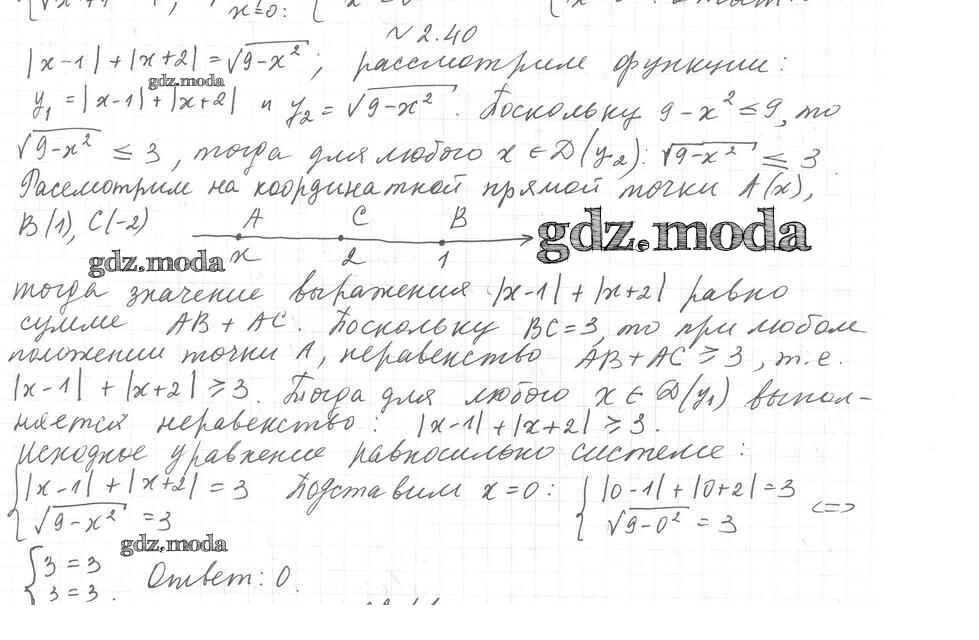 №2.40
|x-1|+|x+2|=√9-x²; рассмотрим функции:
gdz.moda
y₁=|x-1|+|x+2| и y₂=√9-x². Поскольку 9-x²≤9, то
√9-x² ≤ 3, тогда для любого x∈D(y₂): √9-x² ≤ 3
Рассмотрим на координатной прямой точки A(x),
B(1), C(-2)
A C B
gdz.moda
x 2 1
gdz.moda
тогда значение выражения |x-1|+|x+2| равно
сумме AB+AC. Поскольку BC=3, то при любом
положении точки A, неравенство AB+AC≥3, т.е.
|x-1|+|x+2|≥3. Тогда для любого x∈D(y₁) выпол-
няется неравенство: |x-1|+|x+2|≥3.
исходное уравнение равносильно системе:
{|x-1|+|x+2|=3 Подставим x=0: {|0-1|+|0+2|=3
√9-x² =3 √9-0² =3 <=>
gdz.moda
{3=3
3=3. Ответ: 0.